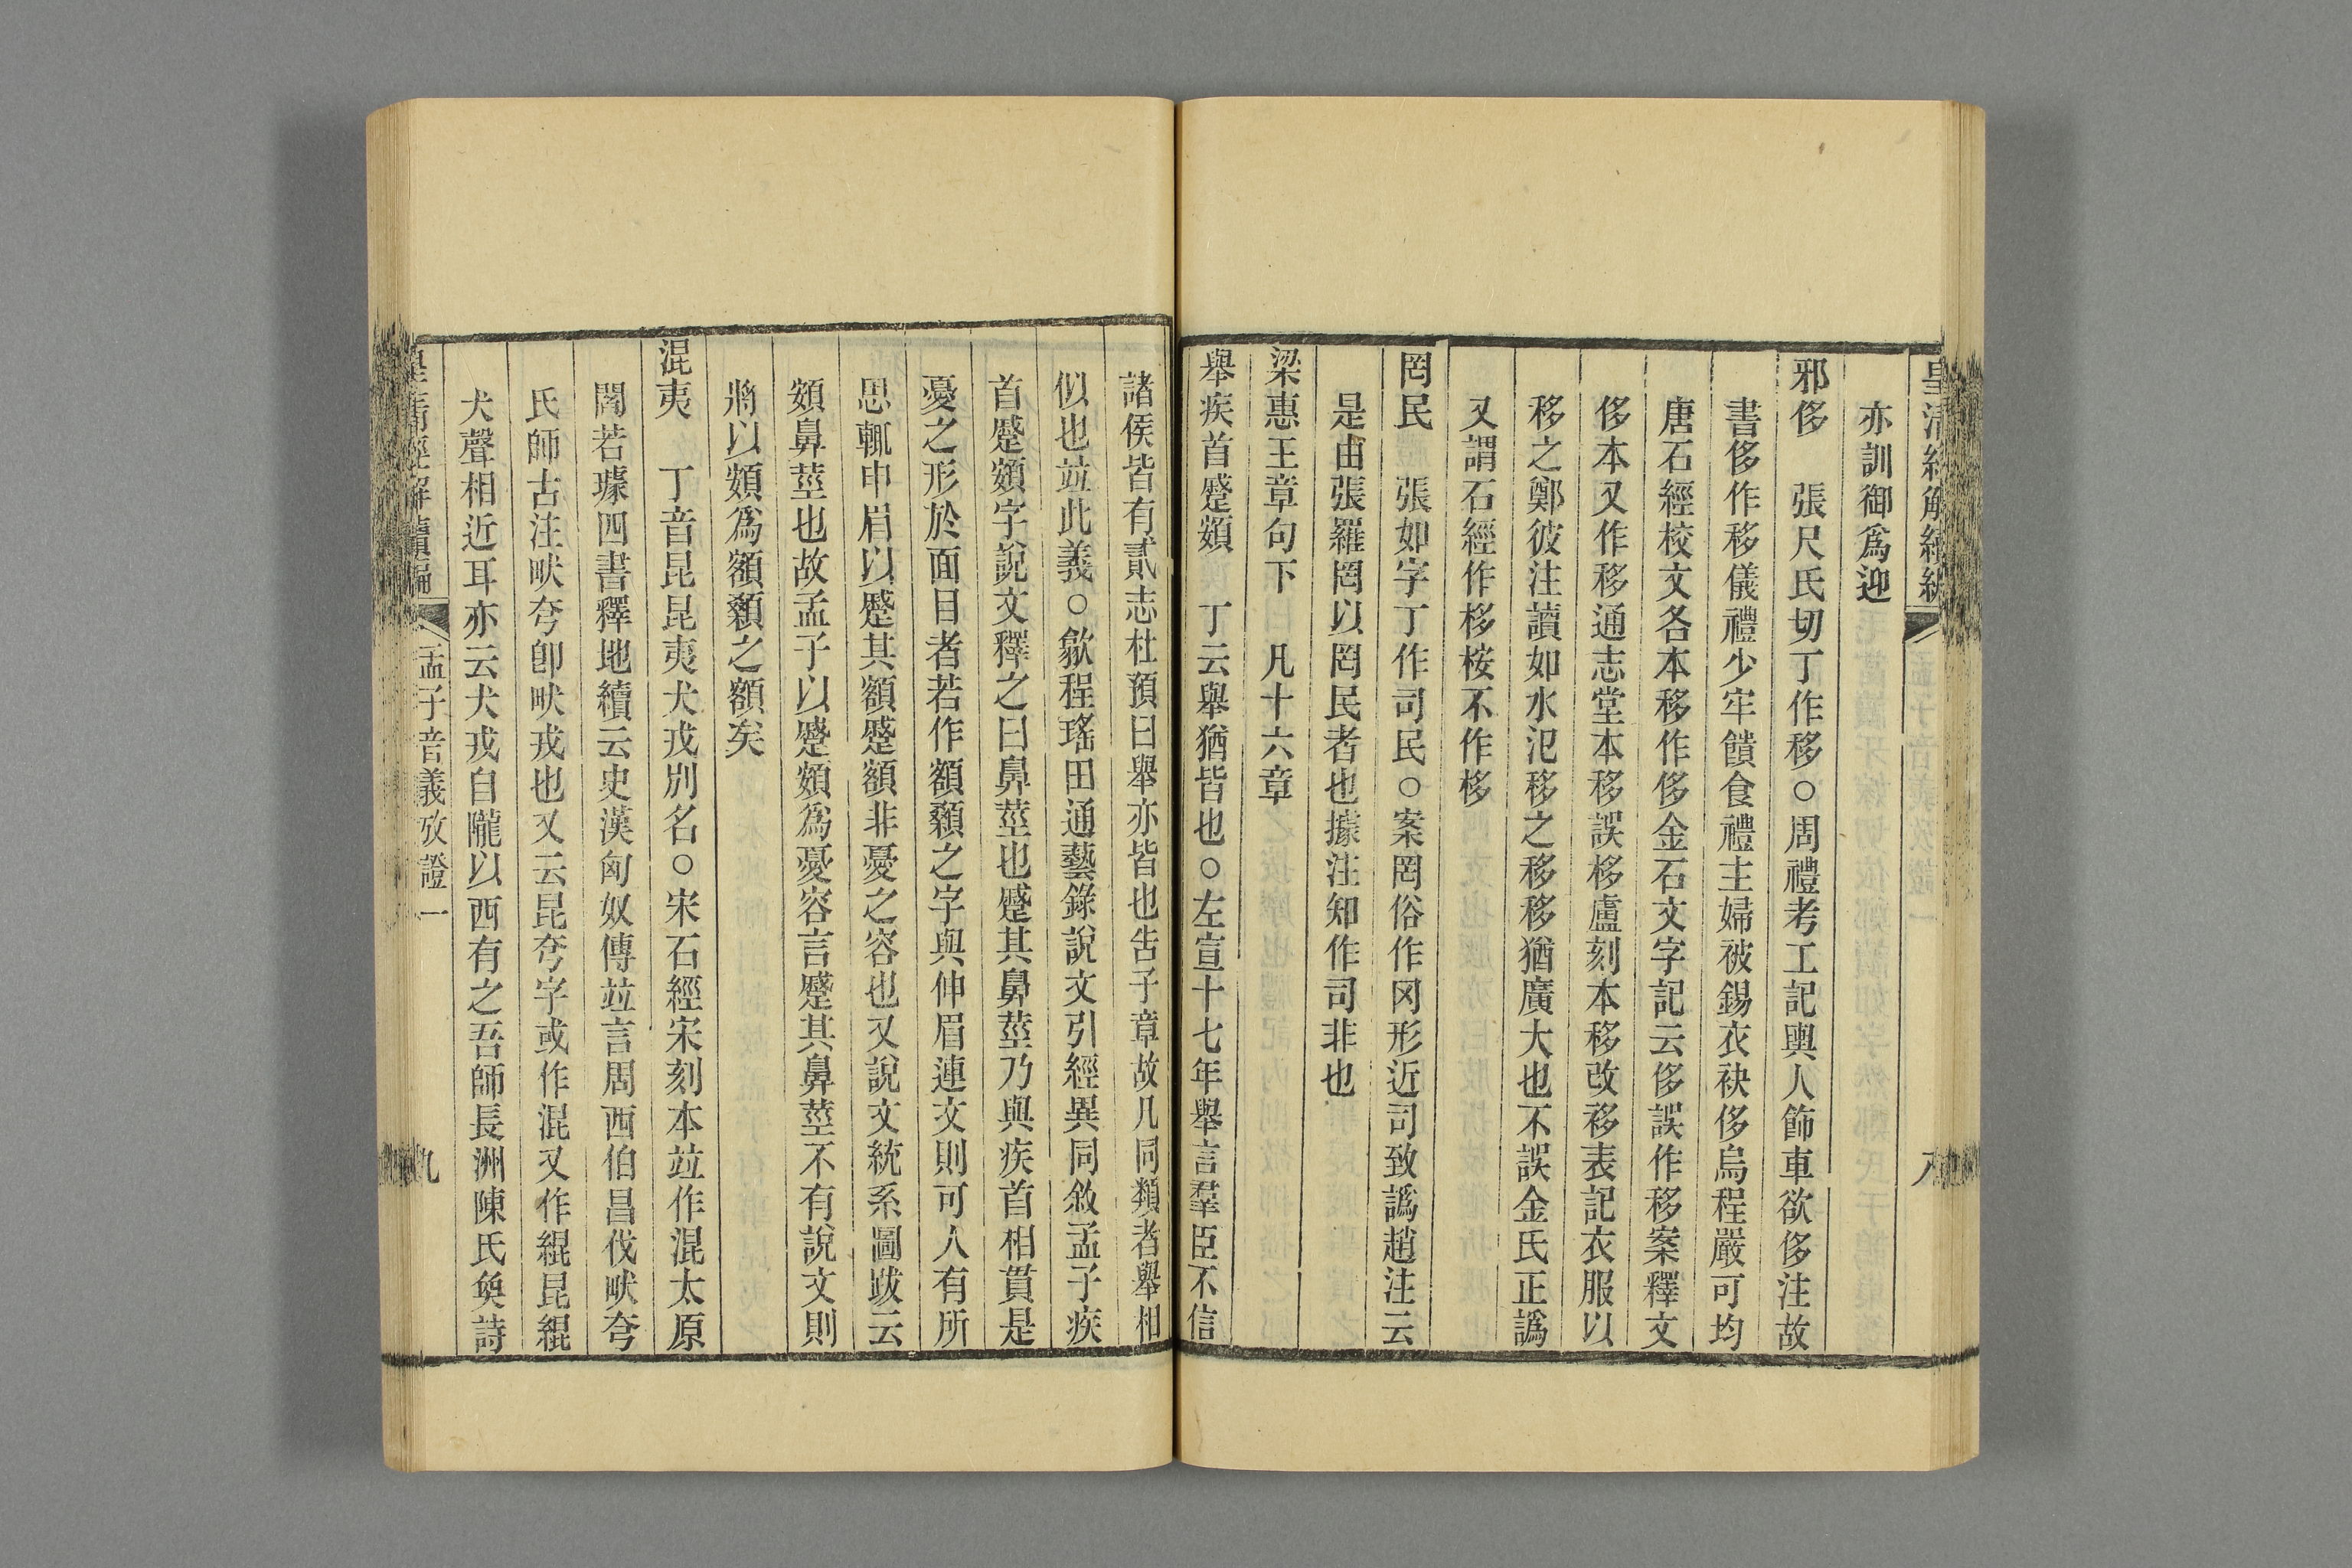 皇清經解續編
八
亦訓御爲迎
邪侈　張尺氏切丁作移○周禮考工記輿人飾車欲侈注故
書侈作移儀禮少牢饋食禮主婦被錫衣袂侈烏程嚴可均
唐石經校文各本移作侈金石文字記云侈誤作移案釋文
侈本又作移通志堂本移誤栘盧刻本移改移表記衣服以
移之鄭彼注讀如水汜移之移移猶廣大也不誤金氏正譌
又謂石經作栘桉不作栘
罔民　張如字丁作司民○案罔俗作冈形近司致譌趙注云
是由張羅罔以罔民者也據注知作司非也
梁惠王章句下　凡十六章
舉疾首蹙頞　丁云舉猶皆也○左宣十七年舉言羣臣不信
諸侯皆有貳志杜預曰舉亦皆也吿子章故凡同類者舉相
似也竝此義○歙程瑤田通藝錄說文引經異同敘孟子疾
首蹙頞字說文釋之曰鼻莖也蹙其鼻莖乃與疾首相貫是
憂之形於面目者若作額顙之字與伸眉連文則可人有所
思輒申眉以蹙其額蹙額非憂之容也又說文統系圖跋云
頞鼻莖也故孟子以蹙頞爲憂容言蹙其鼻莖不有說文則
將以頞爲額顙之額矣
混夷　丁音昆昆夷犬戎別名○宋石經宋刻本竝作混太原
閻若璩四書釋地續云史漢匈奴傳竝言周西伯昌伐畎夸
氏師古注畎夸卽畎戎也又云昆夸字或作混又作緄昆緄
犬聲相近耳亦云犬戎自隴以西有之吾師長洲陳氏奐詩
皇淸經解續編
孟子音義攷證一
九